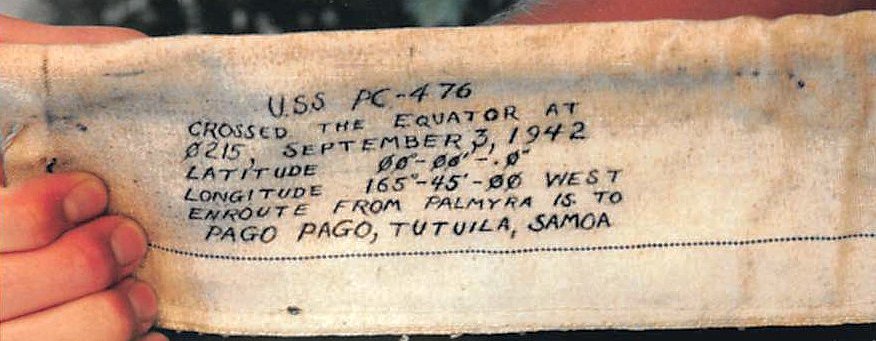 U.S.S PC-476
CROSSED THE EQUATOR AT
Ø215, SEPTEMBER 3, 1942
LATITUDE ØØ°-ØØ'-.Ø"
LONGITUDE 165°-45'-ØØ WEST
ENROUTE FROM PALMYRA IS TO
PAGO PAGO, TUTUILA, SAMOA